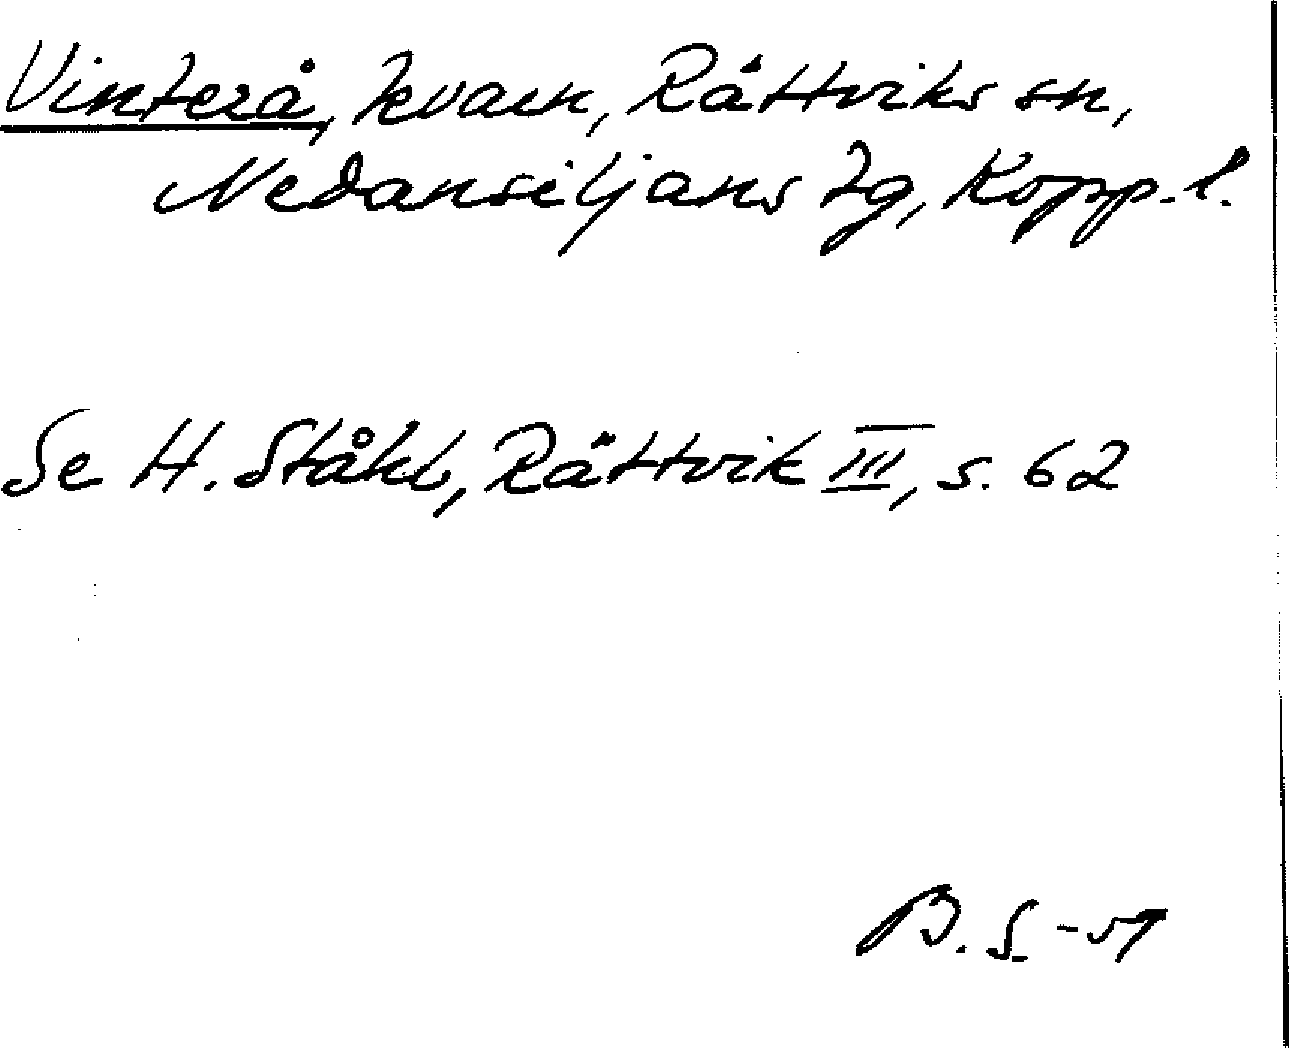 Vinterå, kvarn, Rättviks sn,
Nedansiljans tg, Kopp. l.
Se H. Ståhl, Rättvik III, s. 62
B. S. -51